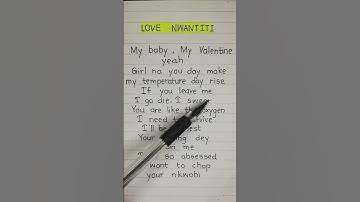 LOVE NWANTITI
My baby, My Valentine
yeah
Girl na you day make
my temperature day rise
If you leave me
I go die, I swear
You are like the oxygen
I need to survive
I'll be
Your dey
me
so obsessed
want to chop
your nkwobi